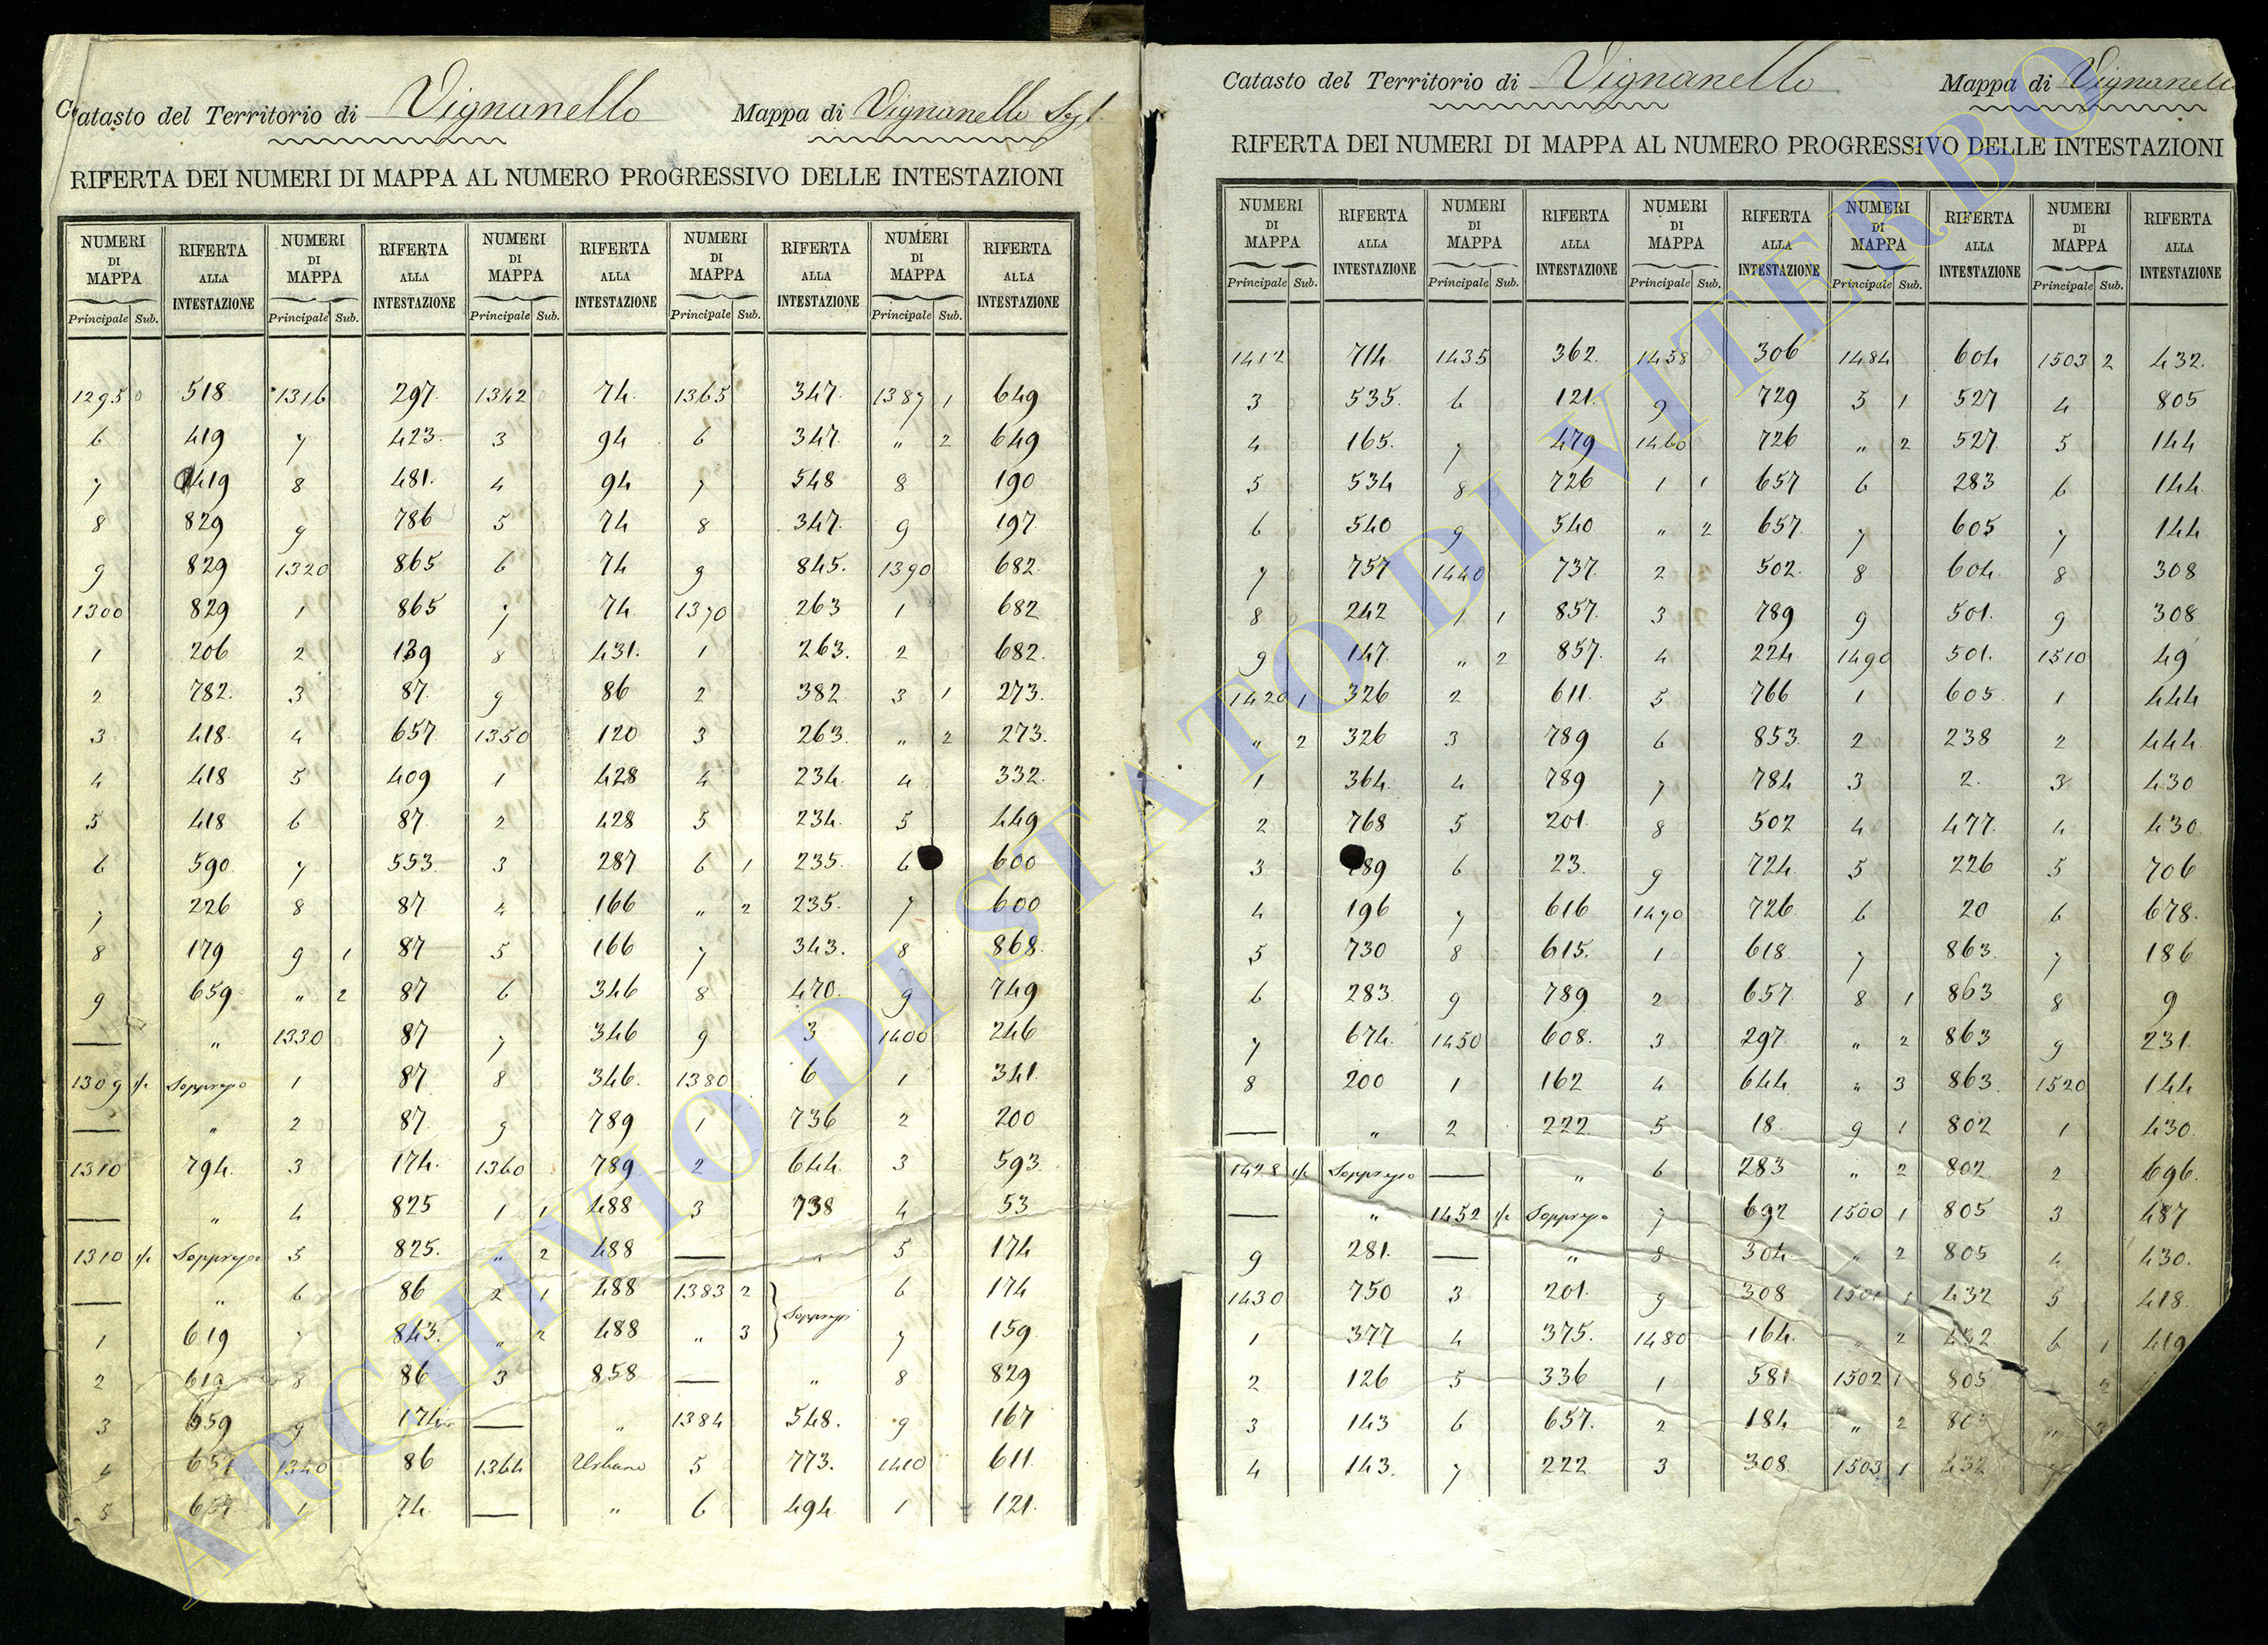 Catasto del Territorio di Vignanello Mappa di Vignanello
RIFERTA DEI NUMERI DI MAPPA AL NUMERO PROGRESSIVO DELLE INTESTAZIONI
NUMERI DI MAPPA RIFERTA ALLA INTESTAZIONE NUMERI DI MAPPA RIFERTA ALLA INTESTAZIONE NUMERI DI MAPPA RIFERTA ALLA INTESTAZIONE NUMERI DI MAPPA RIFERTA ALLA INTESTAZIONE NUMERI DI MAPPA RIFERTA ALLA INTESTAZIONE
Principale Sub. Principale Sub. Principale Sub. Principale Sub. Principale Sub.
1295 518 1316 297 1342 74 1365 347 1387 1 649
6 419 7 423 3 94 6 347 " 2 649
7 419 8 481 4 94 7 548 8 190
8 829 9 786 5 74 8 347 9 197
9 829 1320 865 6 74 9 845 1390 682
1300 829 1 865 7 74 1370 263 1 682
1 206 2 139 8 431 1 263 2 682
2 782 3 87 9 86 2 382 3 1 273
3 418 4 657 1350 120 3 263 " 2 273
4 418 5 409 1 428 4 234 4 332
5 418 6 87 2 428 5 234 5 449
6 590 7 553 3 287 6 1 235 6 600
7 226 8 87 4 166 " 2 235 7 600
8 179 9 1 87 5 166 7 343 8 868
9 659 " 2 87 6 346 8 470 9 749
— " 1330 87 7 346 9 3 1400 246
1309 1/2 Soppresso 1 87 8 346 1380 6 1 341
— " 2 87 9 789 1 736 2 200
1310 794 3 174 1360 789 2 644 3 593
— " 4 825 1 1 488 3 738 4 53
1310 1/2 Soppresso 5 825 " 2 488 — " 5 174
— " 6 86 2 1 488 1383 2 Soppressi 6 174
1 619 7 843 " 2 488 " 3 7 159
2 619 8 86 3 858 — " 8 829
3 659 9 174 — " 1384 548 9 167
4 657 1340 86 1364 Urbano 5 773 1410 611
5 657 1 74 — " 6 494 1 121
Catasto del Territorio di Vignanello Mappa di Vignanello
RIFERTA DEI NUMERI DI MAPPA AL NUMERO PROGRESSIVO DELLE INTESTAZIONI
NUMERI DI MAPPA RIFERTA ALLA INTESTAZIONE NUMERI DI MAPPA RIFERTA ALLA INTESTAZIONE NUMERI DI MAPPA RIFERTA ALLA INTESTAZIONE NUMERI DI MAPPA RIFERTA ALLA INTESTAZIONE NUMERI DI MAPPA RIFERTA ALLA INTESTAZIONE
Principale Sub. Principale Sub. Principale Sub. Principale Sub. Principale Sub.
1412 714 1435 362 1458 306 1484 604 1503 2 432
3 535 6 121 9 729 5 1 527 4 805
4 165 7 479 1460 726 " 2 527 5 144
5 534 8 726 1 1 657 6 283 6 144
6 540 9 540 " 2 657 7 605 7 144
7 757 1440 737 2 502 8 604 8 308
8 242 1 1 857 3 789 9 501 9 308
9 147 " 2 857 4 224 1490 501 1510 49
1420 1 326 2 611 5 766 1 605 1 444
" 2 326 3 789 6 853 2 238 2 444
1 364 4 789 7 784 3 2 3 430
2 768 5 201 8 502 4 477 4 430
3 89 6 23 9 724 5 226 5 706
4 196 7 616 1470 726 6 20 6 678
5 730 8 615 1 618 7 863 7 186
6 283 9 789 2 657 8 1 863 8 9
7 674 1450 608 3 297 " 2 863 9 231
8 200 1 162 4 644 " 3 863 1520 144
— " 2 222 5 18 9 1 802 1 430
1428 1/2 Soppresso — " 6 283 " 2 802 2 696
— " 1452 1/2 Soppresso 7 692 1500 1 805 3 487
9 281 — " 8 304 " 2 805 4 430
1430 750 3 201 9 308 1501 1 432 5 418
1 377 4 375 1480 164 " 2 432 6 1 419
2 126 5 336 1 581 1502 1 805 2
3 143 6 657 2 184 " 2 " 3
4 143 7 222 3 308 1503 1 432
ARCHIVIO DI STATO DI VITERBO